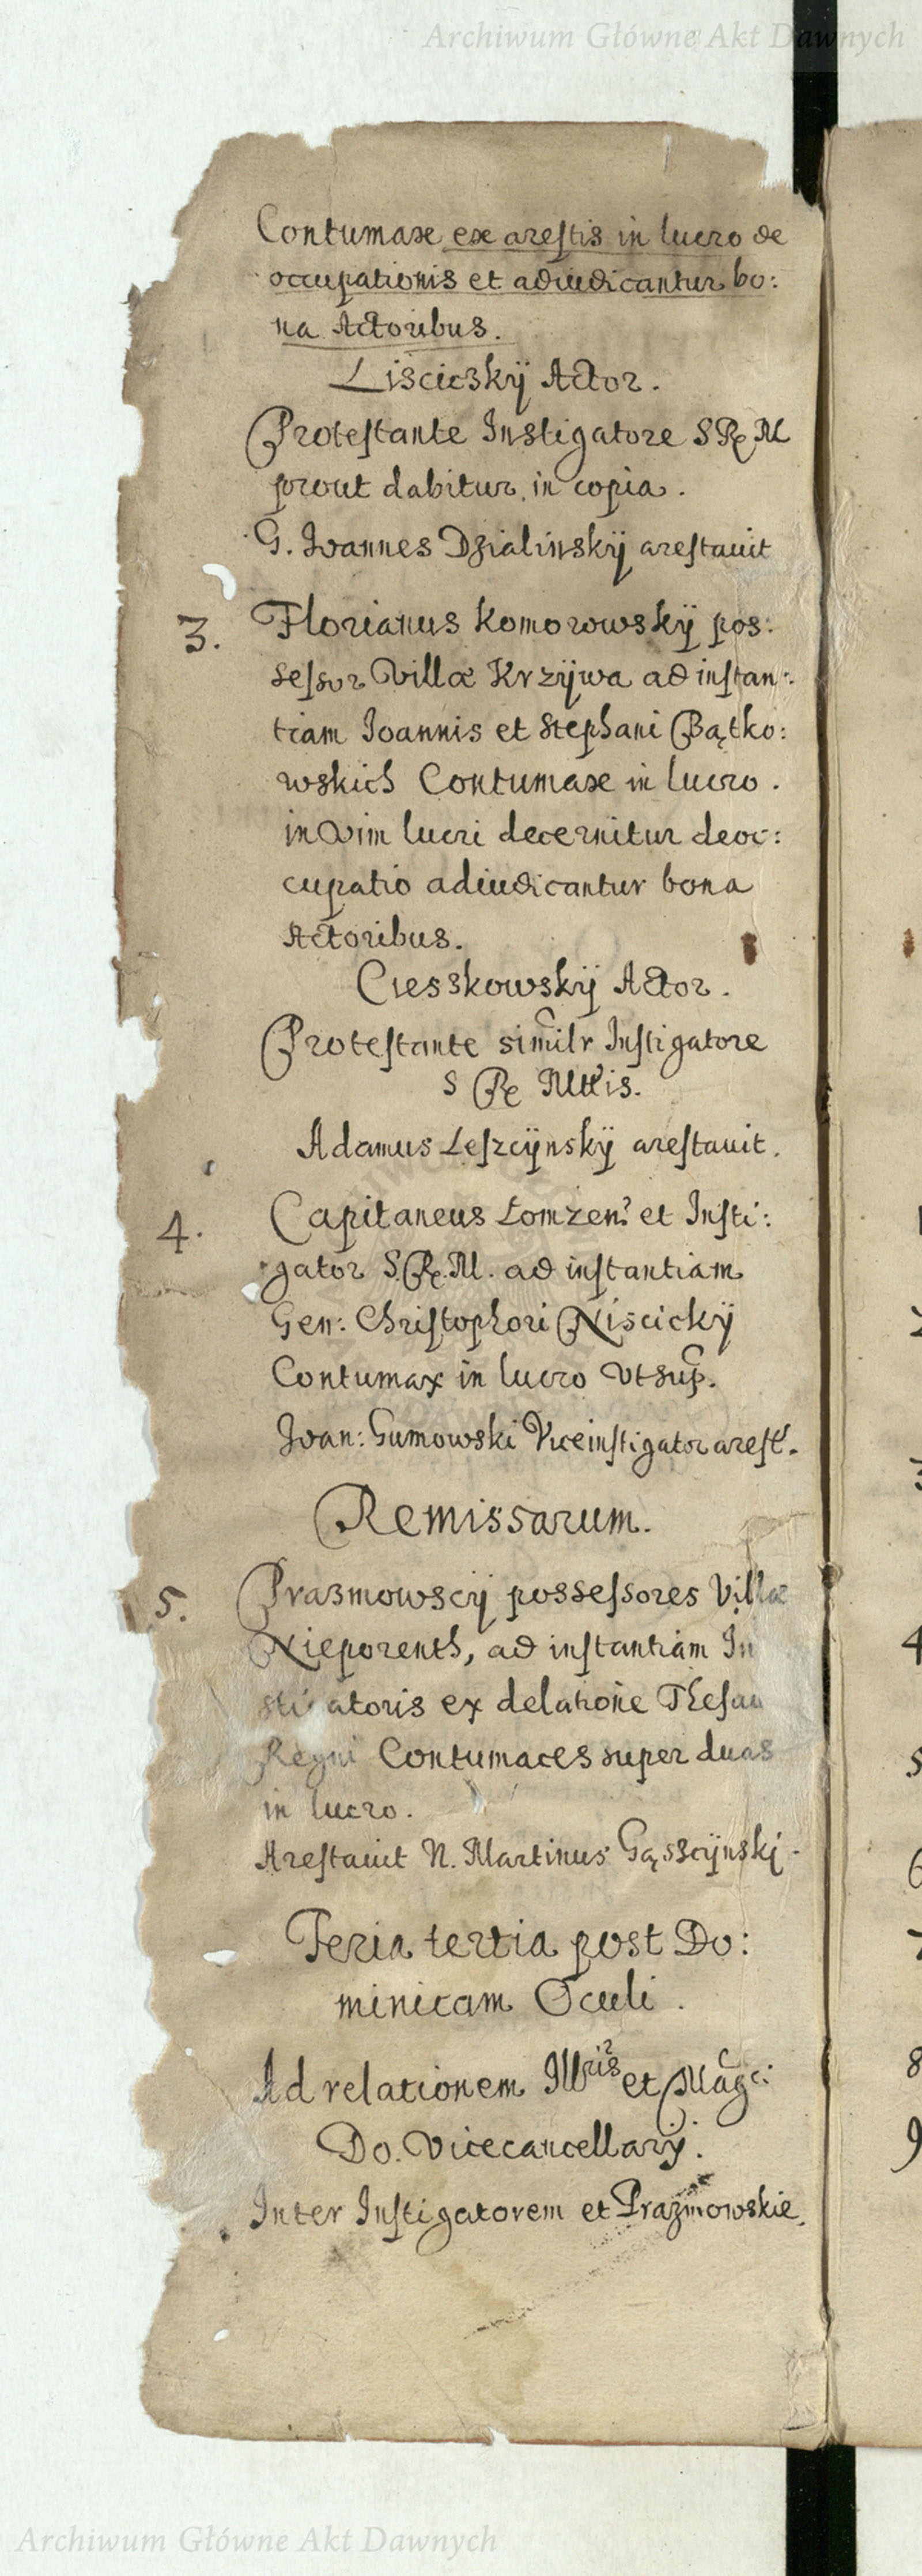 Archiwum Główne Akt Dawnych
Contumax ex arestis in lucro de
occupationis et adiudicantur bo:
na Actoribus.
Liscicskÿ Actor.
Protestante Instigatore S R M
prout dabitur in copia.
G. Ioannes Dzialinskÿ arestauit
3. Florianus Komorowskÿ pos:
sessor Villæ Krzÿwa ad instan:
tiam Ioannis et Stephani Bątko:
wskich Contumax in lucro.
in Vim lucri decernitur deoc:
cupatio adiudicantur bona
Actoribus.
Ciesskowskÿ Actor.
Protestante similr Instigatore
S R Mttis.
Adamus Leszcÿnskÿ arestauit.
4. Capitaneus Łomzen? et Insti:
gator S.R.M. ad instantiam
Gen: Christophori Niscickÿ
Contumax in lucro Vt sup.
Ioan: Gumowski Viceinstigator arest.
Remissarum.
5. Prazmowscÿ possessores Villæ
Nieporenth, ad instantiam In
sti atoris ex delatione Thesau
Regni Contumaces super duas
in lucro.
Arestauit N. Martinus Gąsscÿnskj.
Feria tertia post Do:
minicam Oculi.
Ad relationem Illris et Magci
Do. Vicecancellarÿ.
Inter Instigatorem et Prazmowskie.
4
5
8
9
Archiwum Główne Akt Dawnych